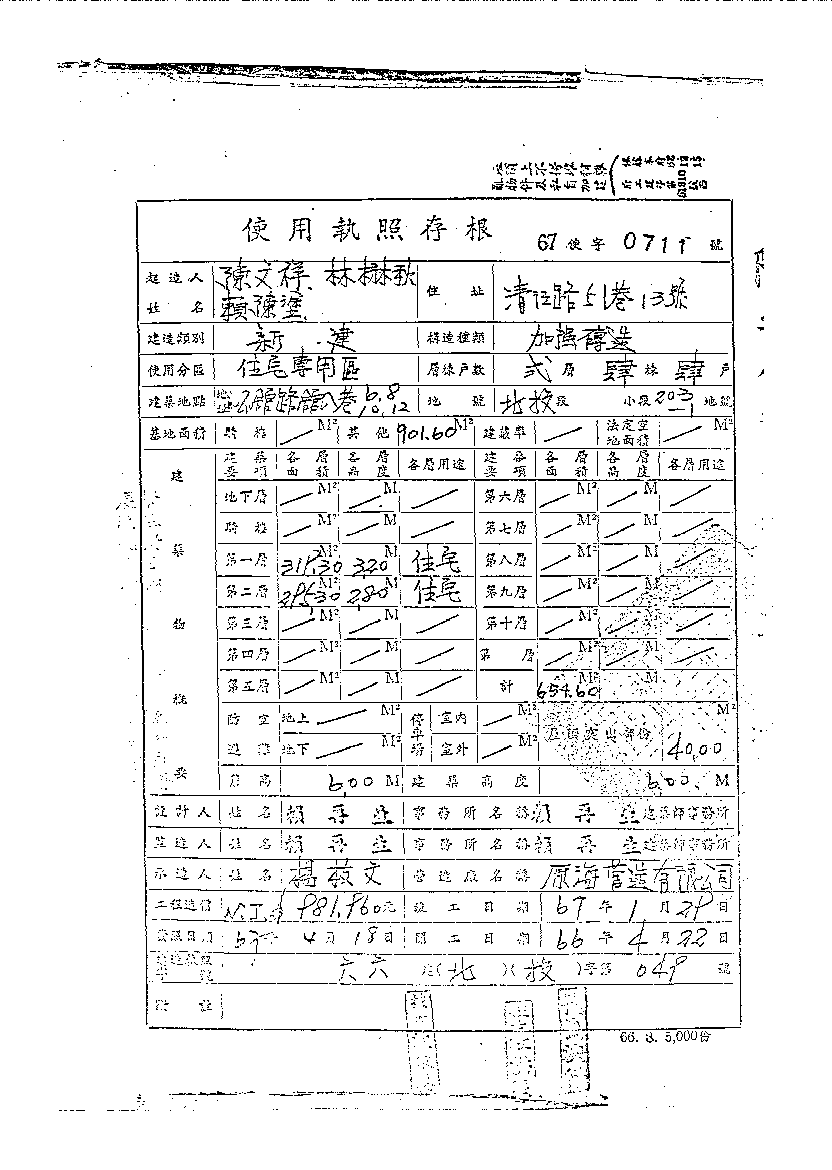 使用執照存根
67 使字 0711 號
起造人 陳文祥、林
姓名 賴陳塗
住址 清江路51巷13號
建造類別 新建 構造種類 加強磚造
使用分區 住宅專用區 層棟戶數 貳層 肆棟 肆戶
建築地點 公館路 巷6.8 10.12 地號 北投段 小段 203-1 地號
基地面積 騎樓 M² 其他 901.60 M² 建蔽率 法定空地面積 M²
建築物概要
建築要項 各層面積 各層高度 各層用途 建築要項 各層面積 各層高度 各層用途
地下層 M² M 第六層 M² M
騎樓 M² M 第七層 M² M
第一層 M² 3.20 M 住宅 第八層 M² M
第二層 M² 2.80 M 住宅 第九層 M² M
第三層 M² M 第十層 M² M
第四層 M² M 第 層 M² M
第五層 M² M 計 M² M
防空避難 地上 M² 地下 M² 停車場 室內 M² 室外 M² 屋頂突出部份 40.00 M²
簷高 6.00 M 建築高度 6.00 M
設計人 姓名 賴再生 事務所名稱 賴再生建築師事務所
監造人 姓名 賴再生 事務所名稱 賴再生建築師事務所
承造人 姓名 楊 文 營造廠名稱 原海營造有限公司
工程造價 NT$ 981,860元 竣工日期 67年1月29日
發照日期 67年4月18日 開工日期 66年4月22日
建造執照字號 六六建(北)(投)字第049號
附註
66. 3. 5,000份